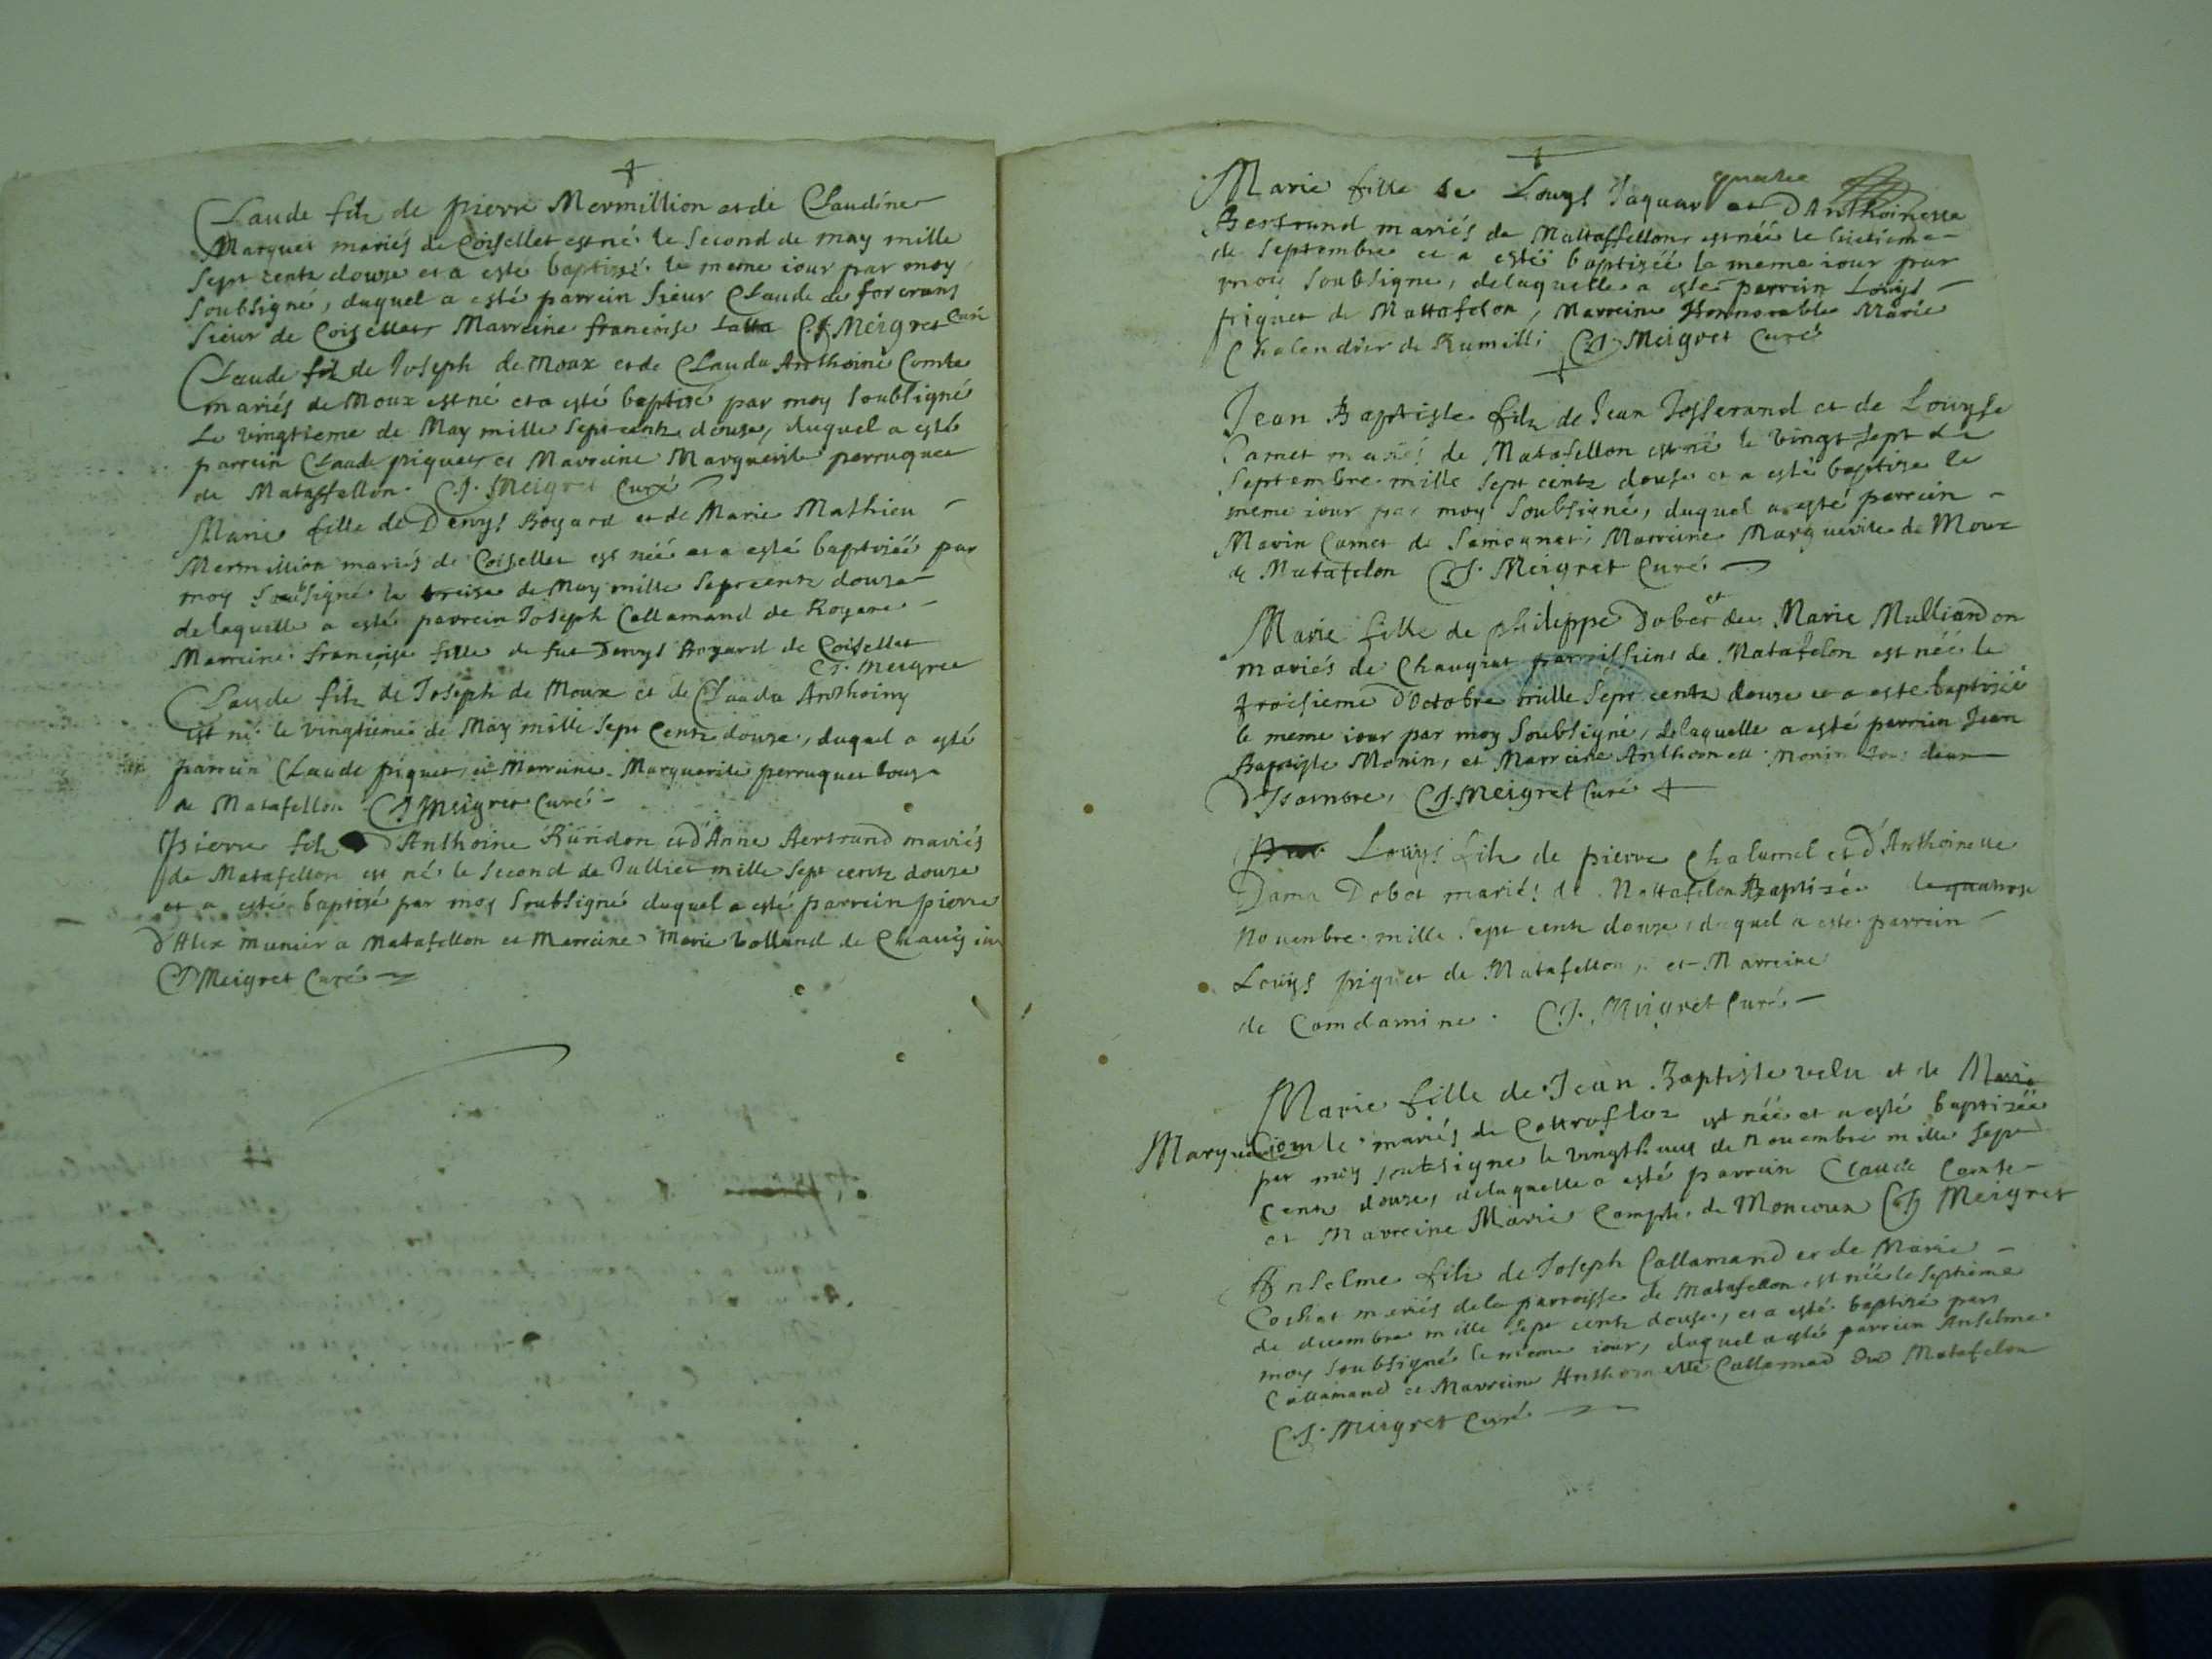 Claude filz de pierre Mermillion et de Claudine
Marguet mariés de Coisellet est né le second de may mille
sept centz douze et a esté baptizé le meme iour par moy
soubsigné, duquel a esté parrein sieur Claude de forcrans
sieur de Coisellet Marreine françoise Curé
C J Meigret
Claude filz de Joseph de Moux et de Clauda Anthoine Comte
mariés de Moux est né et a esté baptizé par moy soubsigné
le vingtieme de May mille sept centz douze, duquel a esté
parrein Claude piquet et Marreine Marguerite perruquet
de Mataffellon. C J. Meigret Curé
Marie fille de Denys Boyard et de Marie Mathieu
Mermillion mariés de Coisellet est néé et a esté baptizéé par
moy soubsigné le treize de May mille sept centz douze
delaquelle a esté parrein Joseph Callamand de Rogere
Marreine françoise fille de fut Denys Boyard de Coisellet
C J. Meigret
Claude filz de Joseph de Moux et de Clauda Anthoiny
est né le vingtieme de May mille sept centz douze, duquel a esté
parrein Claude piquet et Marreine Marguerite perruquet tous
de Matafellon C J Meigret Curé
Pierre filz D'Anthoine et d'Anne Bertrand mariés
de Matafellon est né le second de Julliet mille sept centz douze
et a esté baptizé par moy soubsigné duquel a esté parrein pierre
d'Alex munier a Matafellon et Marreine Marie Volland de
C J Meigret Curé
Marie fille de Louys Jaquar et D'Anthoinesse
Bertrand mariés de Mattaffellon est néé le
de Septembre et a esté baptizéé le meme iour par
moy soubsigné, delaquelle a esté parrein Louys
piquet de Mattafelon, Marreine Honnorable Marie
Chalendrier de Rumilli C J Meigret Curé
Jean Baptiste filz de Jean Josserand et de Louyse
Camet mariés de Matafellon est né le vingt sept de
Septembre mille sept centz douse et a esté baptize le
meme iour par moy soubsigné, duquel a esté parrein
Marin Camet de Samognat, Marreine Marguerite de Moux
de Matafelon C J. Meigret Curé
Marie fille de philippe Dobet et de Marie Mulliandon
mariés de Chaugiat parroissiens de Matafelon est néé le
troisieme d'Octobre mille sept centz douze et a esté baptizéé
le meme iour par moy soubsigné, delaquelle a esté parrein Jean
Baptiste Monin, et Marreine Anthoinette Monin tous deux
C J. Meigret Curé
Louys filz de pierre Chalumel et d'Anthoinette
Dama Dobet mariés de Mattafelon Baptizé le quatorze
Nouembre mille sept centz douze, duquel a esté parrein
Louys piquet de Matafellon, et Marreine
de Comdamine. C J. Meigret Curé
Marie fille de Jean Baptiste velu et de Marie
Marguerite Comte mariés de est néé et a esté baptizéé
par moy soubsigné le vingt de Nouembre mille sept
centz douze, delaquelle a esté parrein Claude Comte
et Marreine Marie Compte de Moncoux C J Meigret
Anselme filz de Joseph Callamand et de Marie
Cochat mariés de la parroisse de Matafellon est néé le septieme
de decembre mille sept centz douze, et a esté baptizé par
moy soubsigné le meme iour, duquel a esté parrein Anselme
Callamand et Marreine Anthoinette Callamad de Matafelon
C J. Meigret Curé